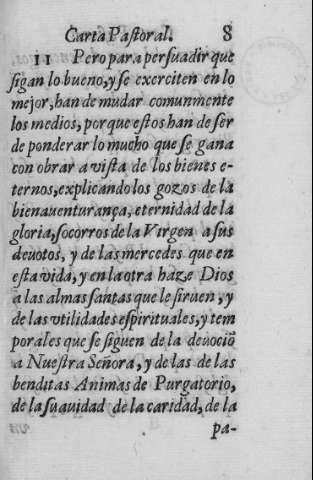 Carta Pastoral. 8
11 Pero para persuadir que
sigan lo bueno, y se exerciten en lo
mejor, han de mudar comunmente
los medios, porque estos han de ser
de ponderar lo mucho que se gana
con obrar a vista de los bienes e-
ternos, explicando los gozos de la
bienauenturança, eternidad de la
gloria, socorros de la Virgen a sus
deuotos, y de las mercedes que en
esta vida, y en la otra haze Dios
a las almas santas que le siruen, y
de las vtilidades espirituales, y tem
porales que se siguen de la deuociõ
a Nuestra Señora, y de las de las
benditas Animas de Purgatorio,
de la suauidad de la caridad, de la
pa-